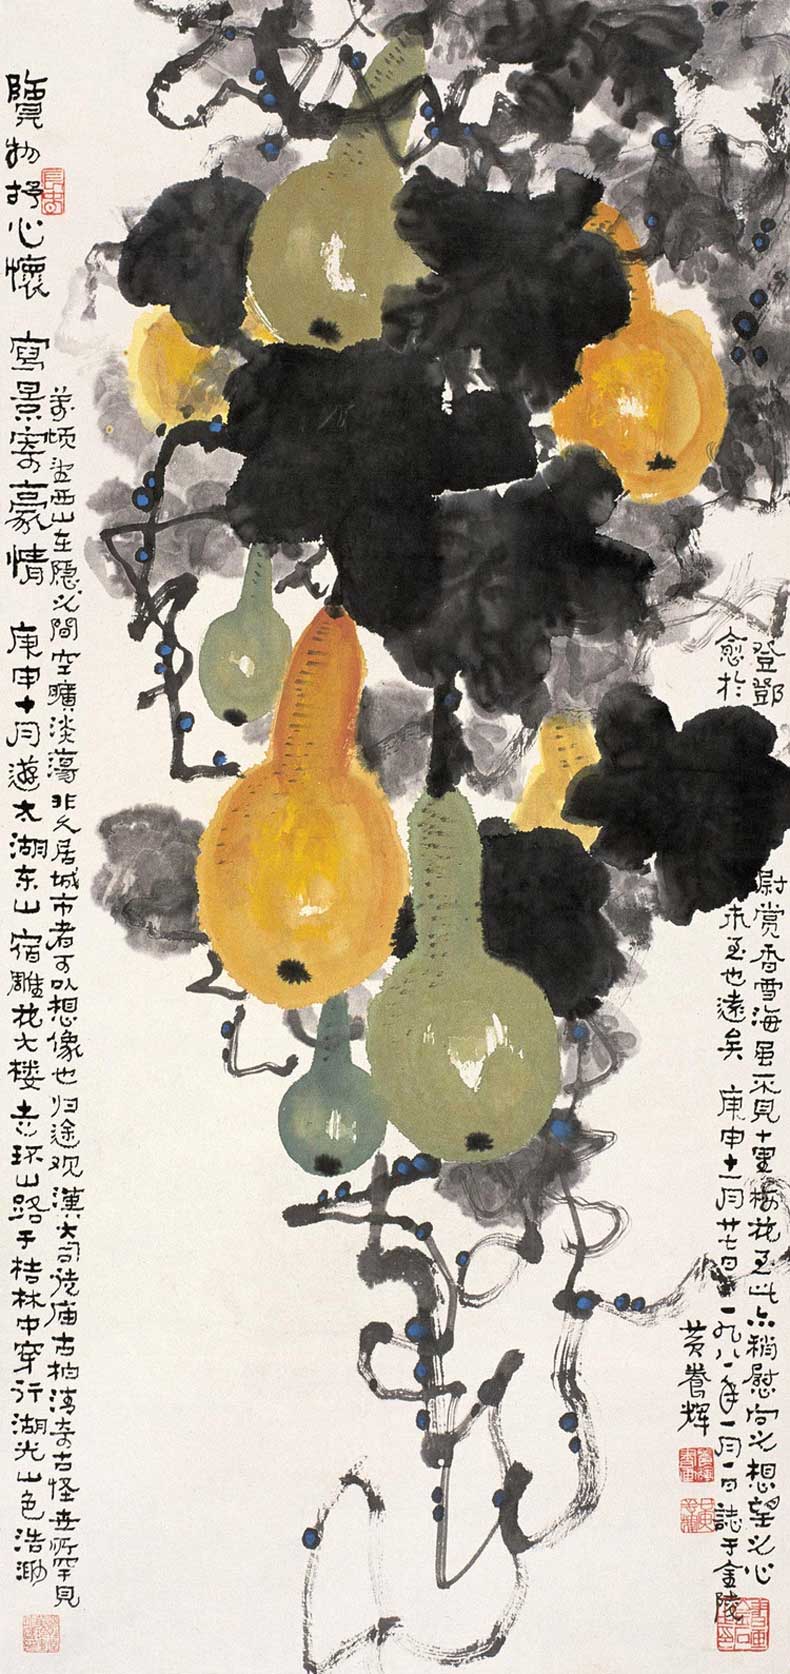 覽物抒心懷 寫景寄豪情 庚申十月遊太湖东山宿雕花大楼去环山路于桔林中穿行湖光山色浩渺
萬頃望西山在隐之間空曠淡蕩非久居城市者可以想像也归途观漢大司徒庙古柏清奇古怪世所罕見
登鄧尉賞香雪海虽不見十里梅花至此亦稍慰向之想望之心
愈於未至也遠矣 庚申十一月廿七日一九八一年一月一日誌于金陵
黄養輝